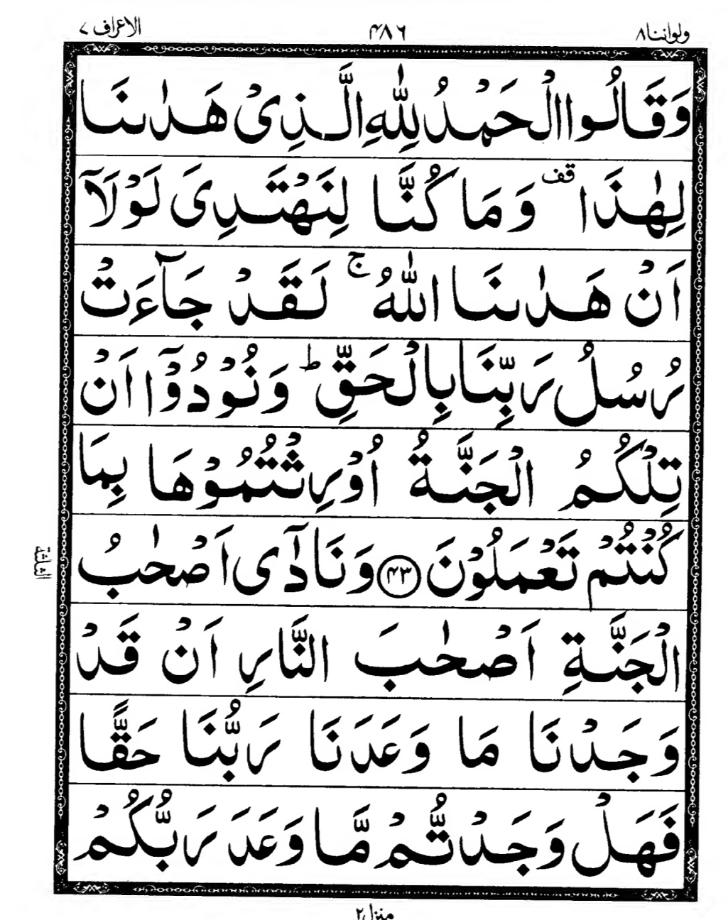 ولواننا ٨ ۴٨۶ الاعراف ٧
وَقَالُوا الْحَمْدُ لِلّٰهِ الَّذِىْ هَدٰىنَا
لِهٰذَا قف وَمَا كُنَّا لِنَهْتَدِىَ لَوْلَآ
اَنْ هَدٰىنَا اللّٰهُ ۚ لَقَدْ جَآءَتْ
رُسُلُ رَبِّنَا بِالْحَقِّ ؕ وَنُوْدُوْۤا اَنْ
تِلْكُمُ الْجَنَّةُ اُوْرِثْتُمُوْهَا بِمَا
كُنْتُمْ تَعْمَلُوْنَ ﴿۴۳﴾ وَنَادٰۤى اَصْحٰبُ
الْجَنَّةِ اَصْحٰبَ النَّارِ اَنْ قَدْ
وَجَدْنَا مَا وَعَدَنَا رَبُّنَا حَقًّا
فَهَلْ وَجَدْتُّمْ مَّا وَعَدَ رَبُّكُمْ
منزل ٢